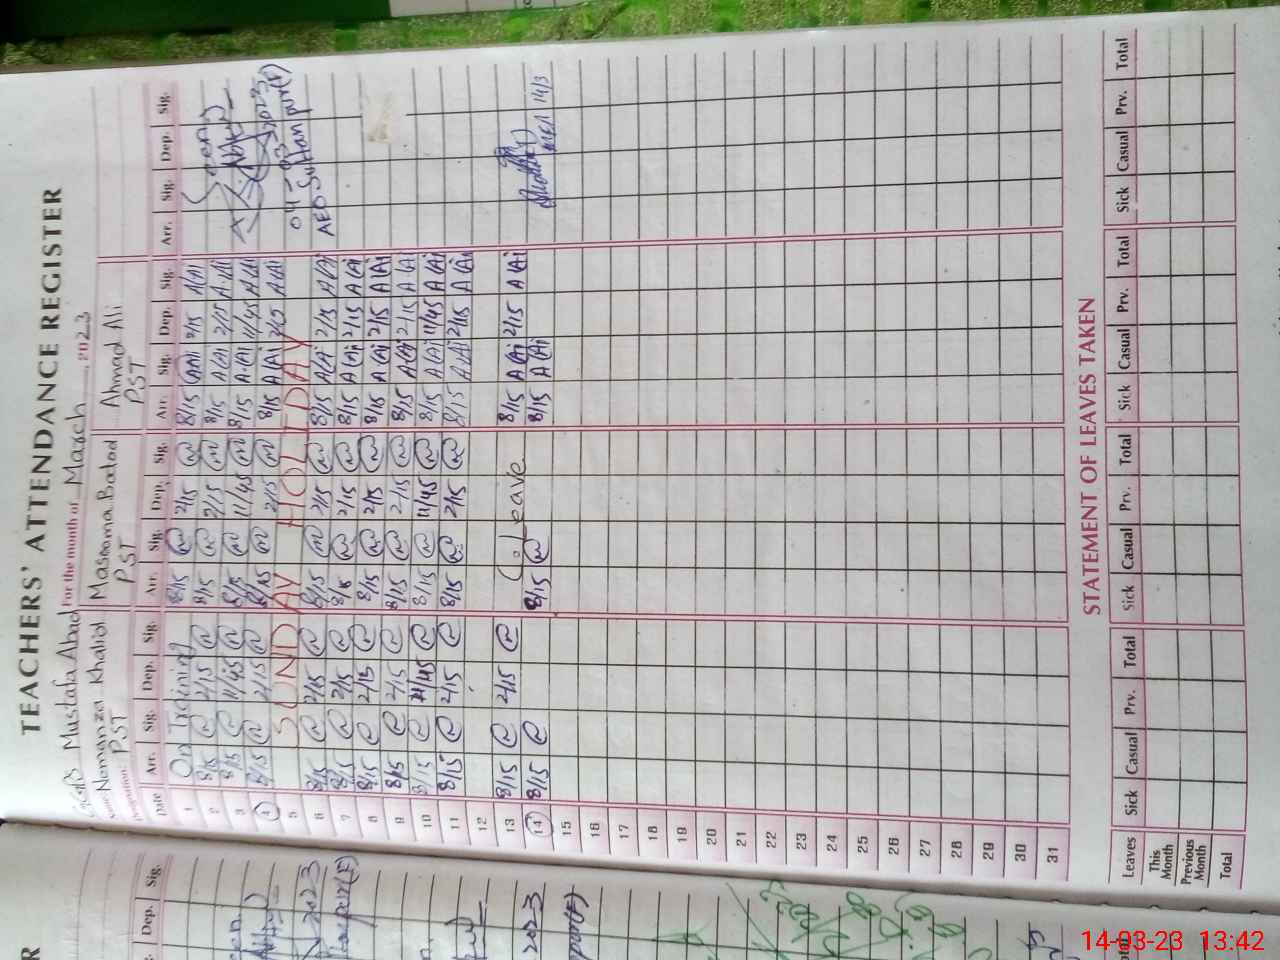 TEACHERS' ATTENDANCE REGISTER
Mustafa Abad For the month of March, 2023
Nomanza Khalid Masooma Batool Ahmad Ali
PST PST PST
Date Arr. Sig. Dep. Sig. Arr. Sig. Dep. Sig. Arr. Sig. Dep. Sig. Arr. Sig. Dep. Sig.
1 On Training 8/15 2/15 8/15 A(Ai 2/15 A(Ai
2 8/15 2/15 8/15 2/15 8/15 A(Ai 2/15 A(Ai
3 8/15 11/45 8/15 11/45 8/15 A(Ai 11/45 A(Ai
4 8/15 2/15 8/15 2/15 8/15 A(Ai 2/15 A(Ai
5 SUNDAY HOLIDAY AEO Sultanpur(F)
6 8/15 2/15 8/15 2/15 8/15 A(Ai 2/15 A(Ai
7 8/15 2/15 8/15 2/15 8/15 A(Ai 2/15 A(Ai
8 8/15 2/15 8/15 2/15 8/15 A(Ai 2/15 A(Ai
9 8/15 2/15 8/15 2/15 8/15 A(Ai 2/15 A(Ai
10 8/15 11/45 8/15 11/45 8/15 A(Ai 11/45 A(Ai
11 8/15 2/15 8/15 2/15 8/15 A(Ai 2/15 A(Ai
12
13 8/15 2/15 C.Leave 8/15 A(Ai 2/15 A(Ai
14 8/15 8/15 8/15 A(Ai 14/3
15
16
17
18
19
20
21
22
23
24
25
26
27
28
29
30
31
STATEMENT OF LEAVES TAKEN
Leaves Sick Casual Prv. Total Sick Casual Prv. Total Sick Casual Prv. Total Sick Casual Prv. Total
This Month
Previous Month
Total
Dep. Sig.
2023
2023
14-03-23 13:42